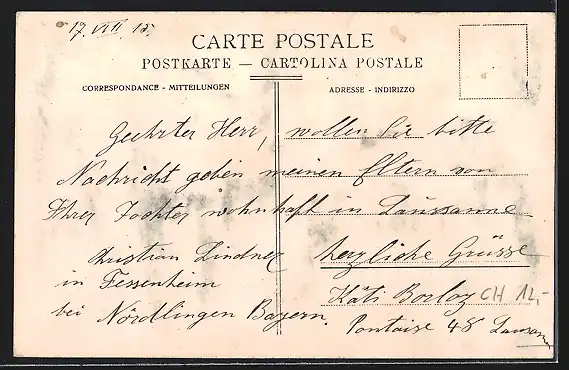 17. VIII. 15.
CARTE POSTALE
POSTKARTE — CARTOLINA POSTALE
CORRESPONDANCE - MITTEILUNGEN
ADRESSE - INDIRIZZO
Geehrter Herr, wollen Sie bitte
Nachricht geben meinen Eltern von
Ihrer Tochter wohnhaft in Laussanne
Christian Lindner
in Fessenheim
bei Nördlingen Bayern.
herzliche Grüsse
Käti Borloz
Pontaise 48 Lausanne
CH 12,-